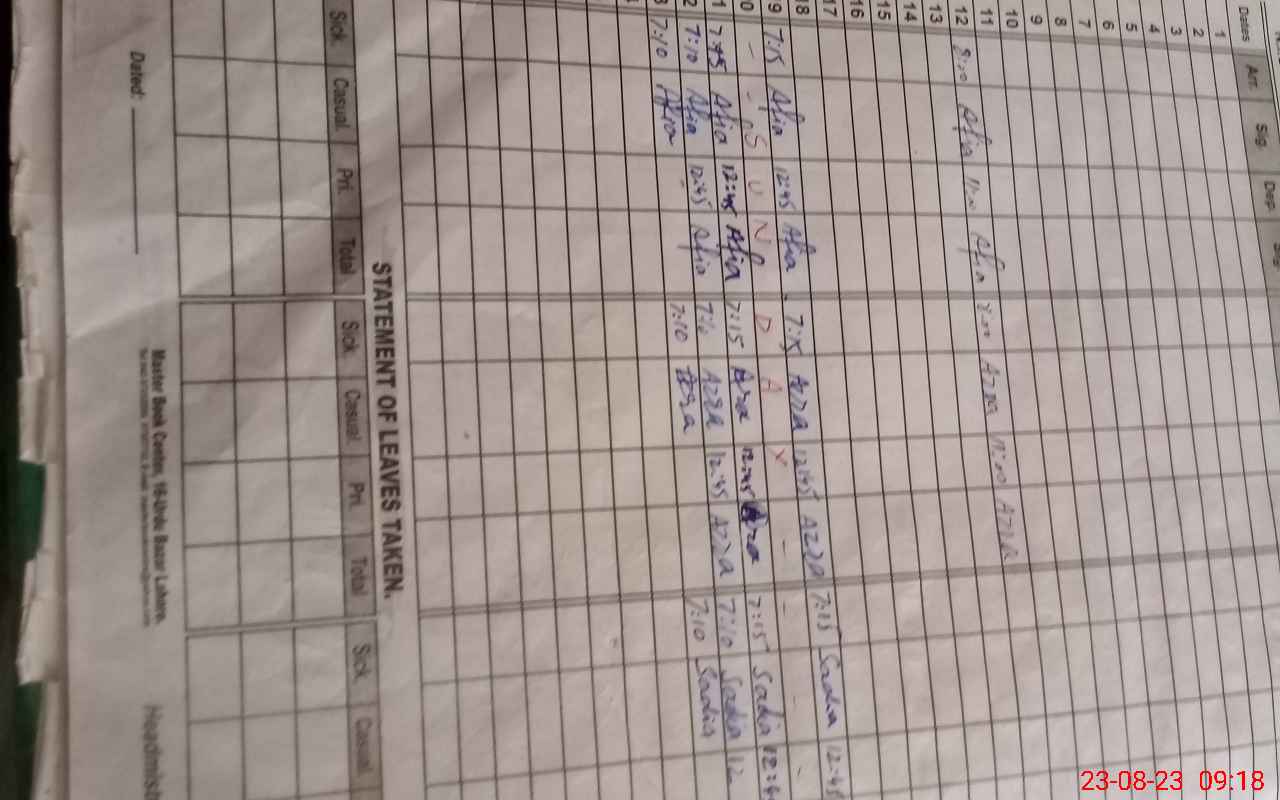 Dates Arr. Sig. Dep. Sig
1
2
3
4
5
6
7
8
9
10
11
12 8:00 Afia 11:00 Afia 8:00 AZRA 11:00 AZRA
13
14
15
16
17
18
19 7:15 Afia 12:45 Afia 7:15 Azra 12:45 AZRA 7:15 Sadia 12:45
0 - - S U N D A Y - - - -
1 7:15 Afia 12:45 Afia 7:15 Azra 12:45 Azra 7:15 Sadia 12:4
2 7:10 Afia 12:45 Afia 7:10 AZRA 12:45 AZRA 7:10 Sadia 12
3 7:10 Afia 7:10 Azra 7:10 Sadia
STATEMENT OF LEAVES TAKEN.
Sick. Casual. Pri. Total Sick. Casual. Pri. Total Sick. Casual.
Dated: Master Book Center, 16-Urdu Bazar Lahore. Headmist
23-08-23 09:18